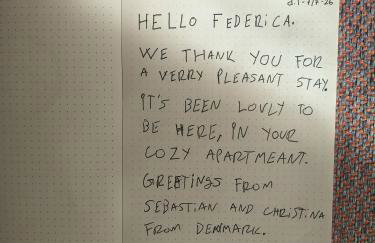 d. 1-7/7-26
HELLO FEDERICA.
WE THANK YOU FOR
A VERRY PLEASANT STAY.
IT'S BEEN LOVLY TO
BE HERE, IN YOUR
COZY APARTMEANT.
GREETINGS FROM
SEBASTIAN AND CHRISTINA
FROM DENMARK.